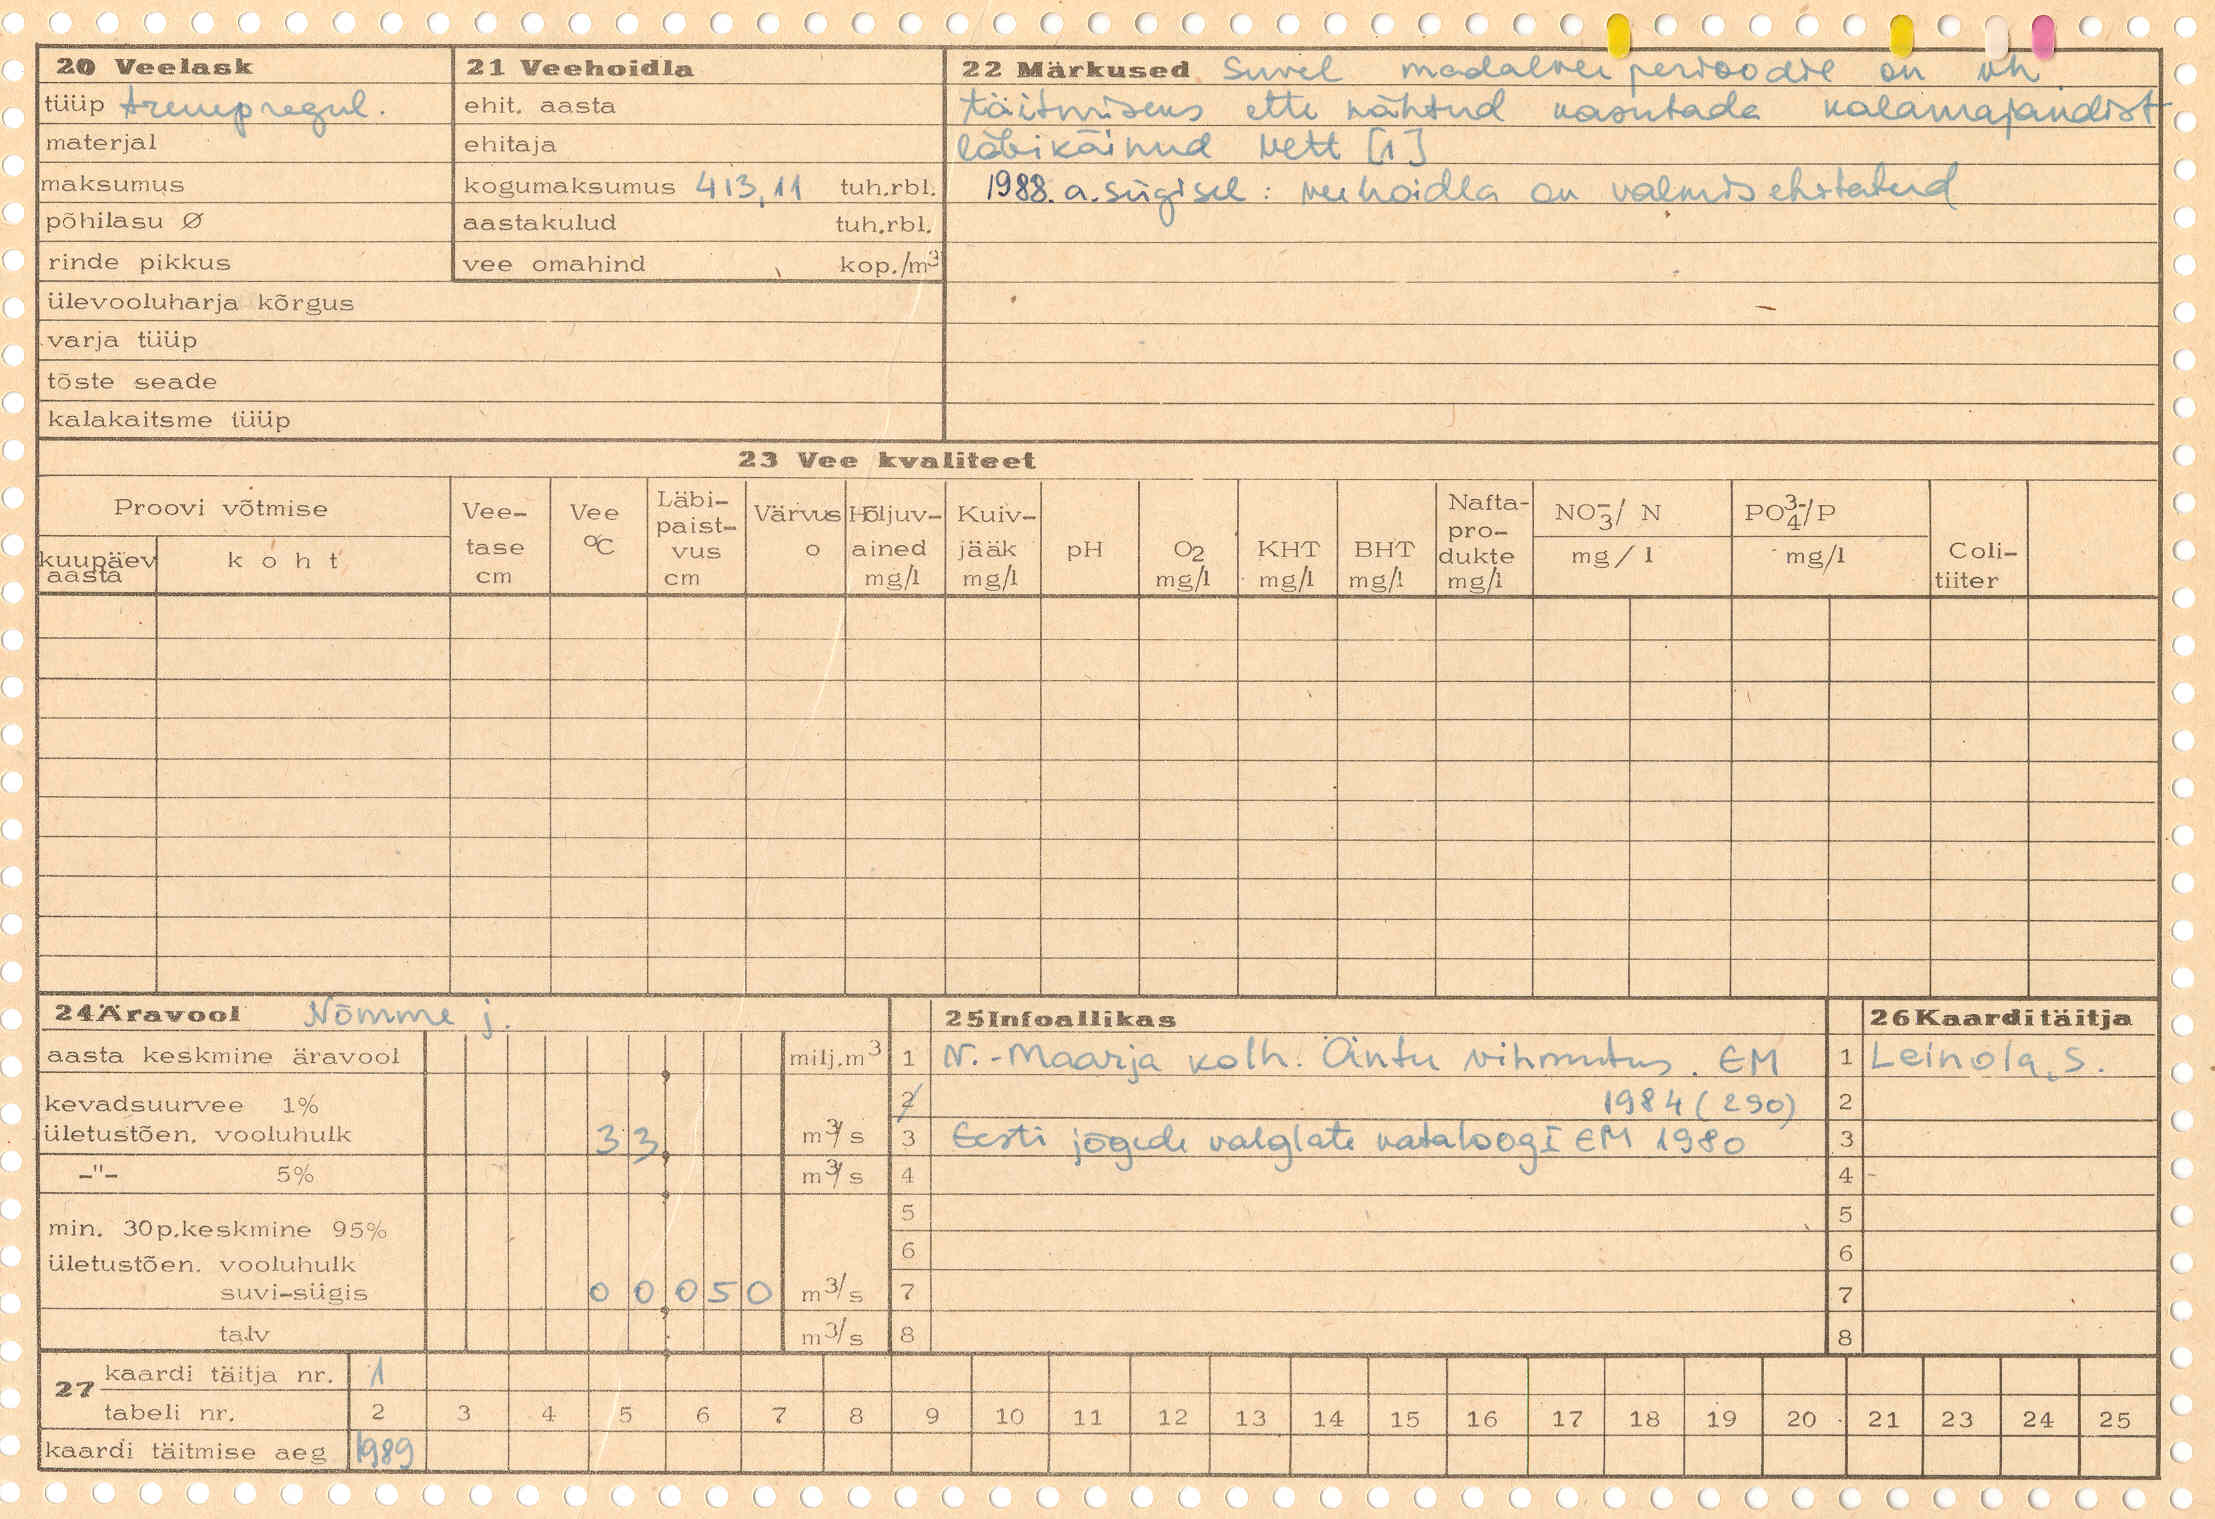 20 Veelask
tüüp trumpregul.
materjal
maksumus
põhilasu Ø
rinde pikkus
ülevooluharja kõrgus
varja tüüp
tõste seade
kalakaitsme tüüp
21 Veehoidla
ehit. aasta
ehitaja
kogumaksumus 413,11 tuh.rbl.
aastakulud tuh.rbl.
vee omahind kop./m³
22 Märkused Suvel madalvee perioodil on vh
täitmiseks ette nähtud kasutada kalamajandist
läbikäinud vett [1]
1988. a. sügisel : veehoidla on valmis ehitatud
23 Vee kvaliteet
Proovi võtmise
kuupäev aasta
koht
Vee-tase cm
Vee °C
Läbi-paist-vus cm
Värvus o
Hõljuv-ained mg/l
Kuiv-jääk mg/l
pH
O2 mg/l
KHT mg/l
BHT mg/l
Nafta-pro-dukte mg/l
NO3⁻/ N mg/l
PO4³⁻/P mg/l
Coli-tiiter
24 Äravool Nõmme j.
aasta keskmine äravool milj.m³
kevadsuurvee 1%
ületustõen. vooluhulk 33, m³/s
-"- 5% m³/s
min. 30p.keskmine 95%
ületustõen. vooluhulk
suvi-sügis 00,050 m³/s
talv m³/s
25 Infoallikas
1 V.-Maarja kolh. Äintu vihmutus. EM
2 1984 (290)
3 Eesti jõgede valglate kataloog I EM 1980
4
5
6
7
8
26 Kaardi täitja
1 Leinola, S.
2
3
4
5
6
7
8
27 kaardi täitja nr. 1
tabeli nr. 2 3 4 5 6 7 8 9 10 11 12 13 14 15 16 17 18 19 20 21 23 24 25
kaardi täitmise aeg 1989